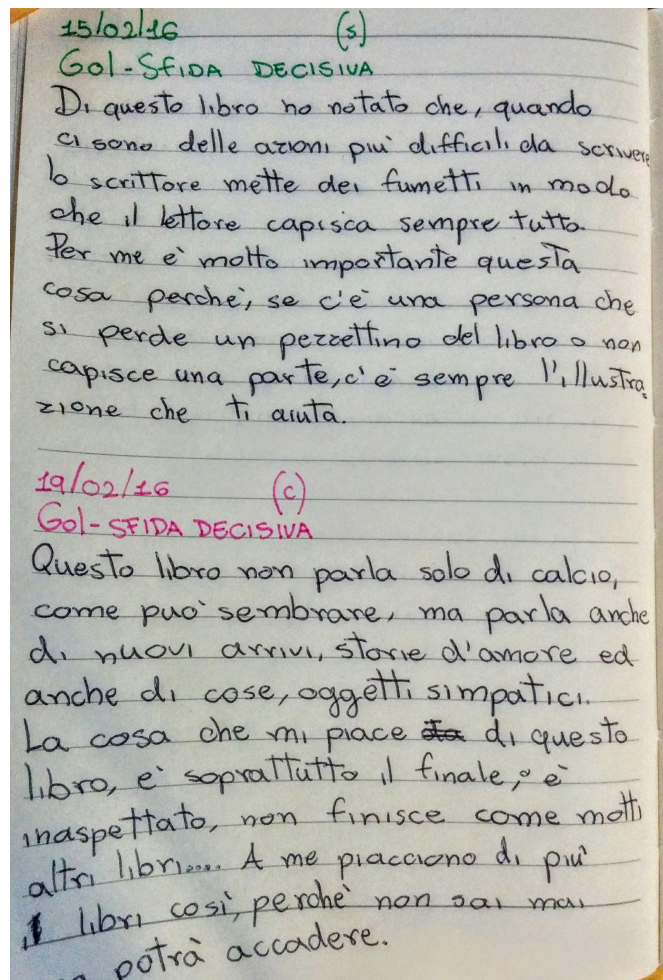 15/02/16 (s)
Gol-SFIDA DECISIVA
Di questo libro ho notato che, quando
ci sono delle azioni più difficili da scrivere
lo scrittore mette dei fumetti in modo
che il lettore capisca sempre tutto.
Per me è molto importante questa
cosa perchè, se c'è una persona che
si perde un pezzettino del libro o non
capisce una parte, c'è sempre l'illustra
zione che ti aiuta.
19/02/16 (c)
Gol-SFIDA DECISIVA
Questo libro non parla solo di calcio,
come può sembrare, ma parla anche
di nuovi arrivi, storie d'amore ed
anche di cose, oggetti simpatici.
La cosa che mi piace di questo
libro, è soprattutto il finale, è
inaspettato, non finisce come molti
altri libri.... A me piacciono di più
i libri così, perchè non sai mai
potrà accadere.